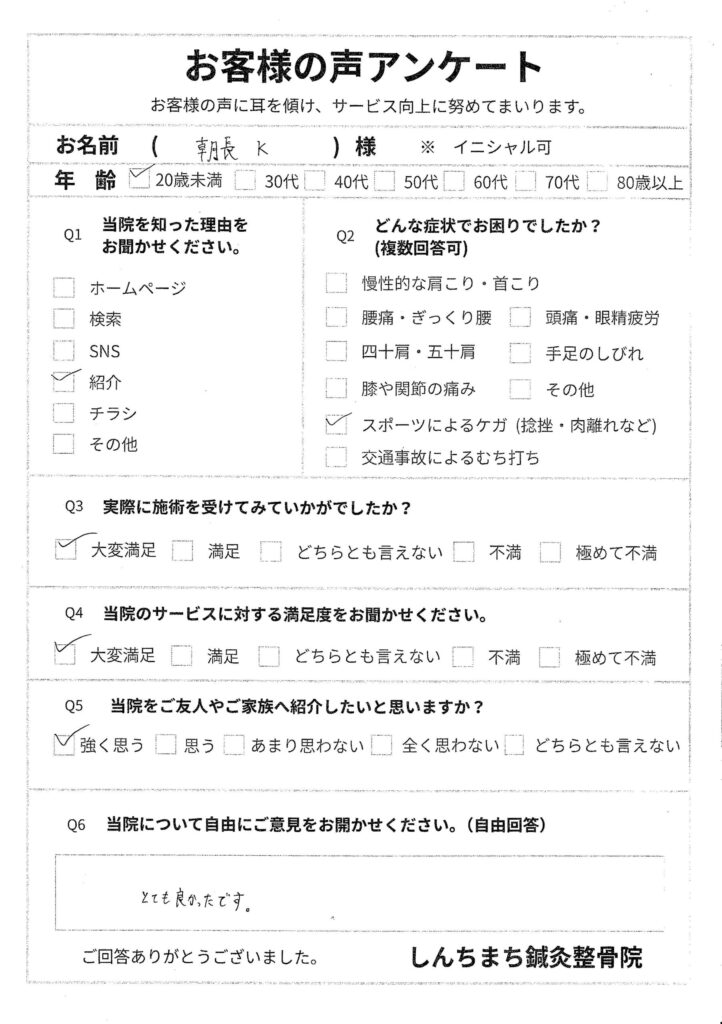 お客様の声アンケート
お客様の声に耳を傾け、サービス向上に努めてまいります。
お名前 ( 朝長 K ) 様 ※ イニシャル可
年 齢 20歳未満 30代 40代 50代 60代 70代 80歳以上
Q1 当院を知った理由を
お聞かせください。
ホームページ
検索
SNS
紹介
チラシ
その他
Q2 どんな症状でお困りでしたか？
(複数回答可)
慢性的な肩こり・首こり
腰痛・ぎっくり腰 頭痛・眼精疲労
四十肩・五十肩 手足のしびれ
膝や関節の痛み その他
スポーツによるケガ (捻挫・肉離れなど)
交通事故によるむち打ち
Q3 実際に施術を受けてみていかがでしたか？
大変満足 満足 どちらとも言えない 不満 極めて不満
Q4 当院のサービスに対する満足度をお聞かせください。
大変満足 満足 どちらとも言えない 不満 極めて不満
Q5 当院をご友人やご家族へ紹介したいと思いますか？
強く思う 思う あまり思わない 全く思わない どちらとも言えない
Q6 当院について自由にご意見をお開かせください。（自由回答）
とても良かったです。
ご回答ありがとうございました。 しんちまち鍼灸整骨院